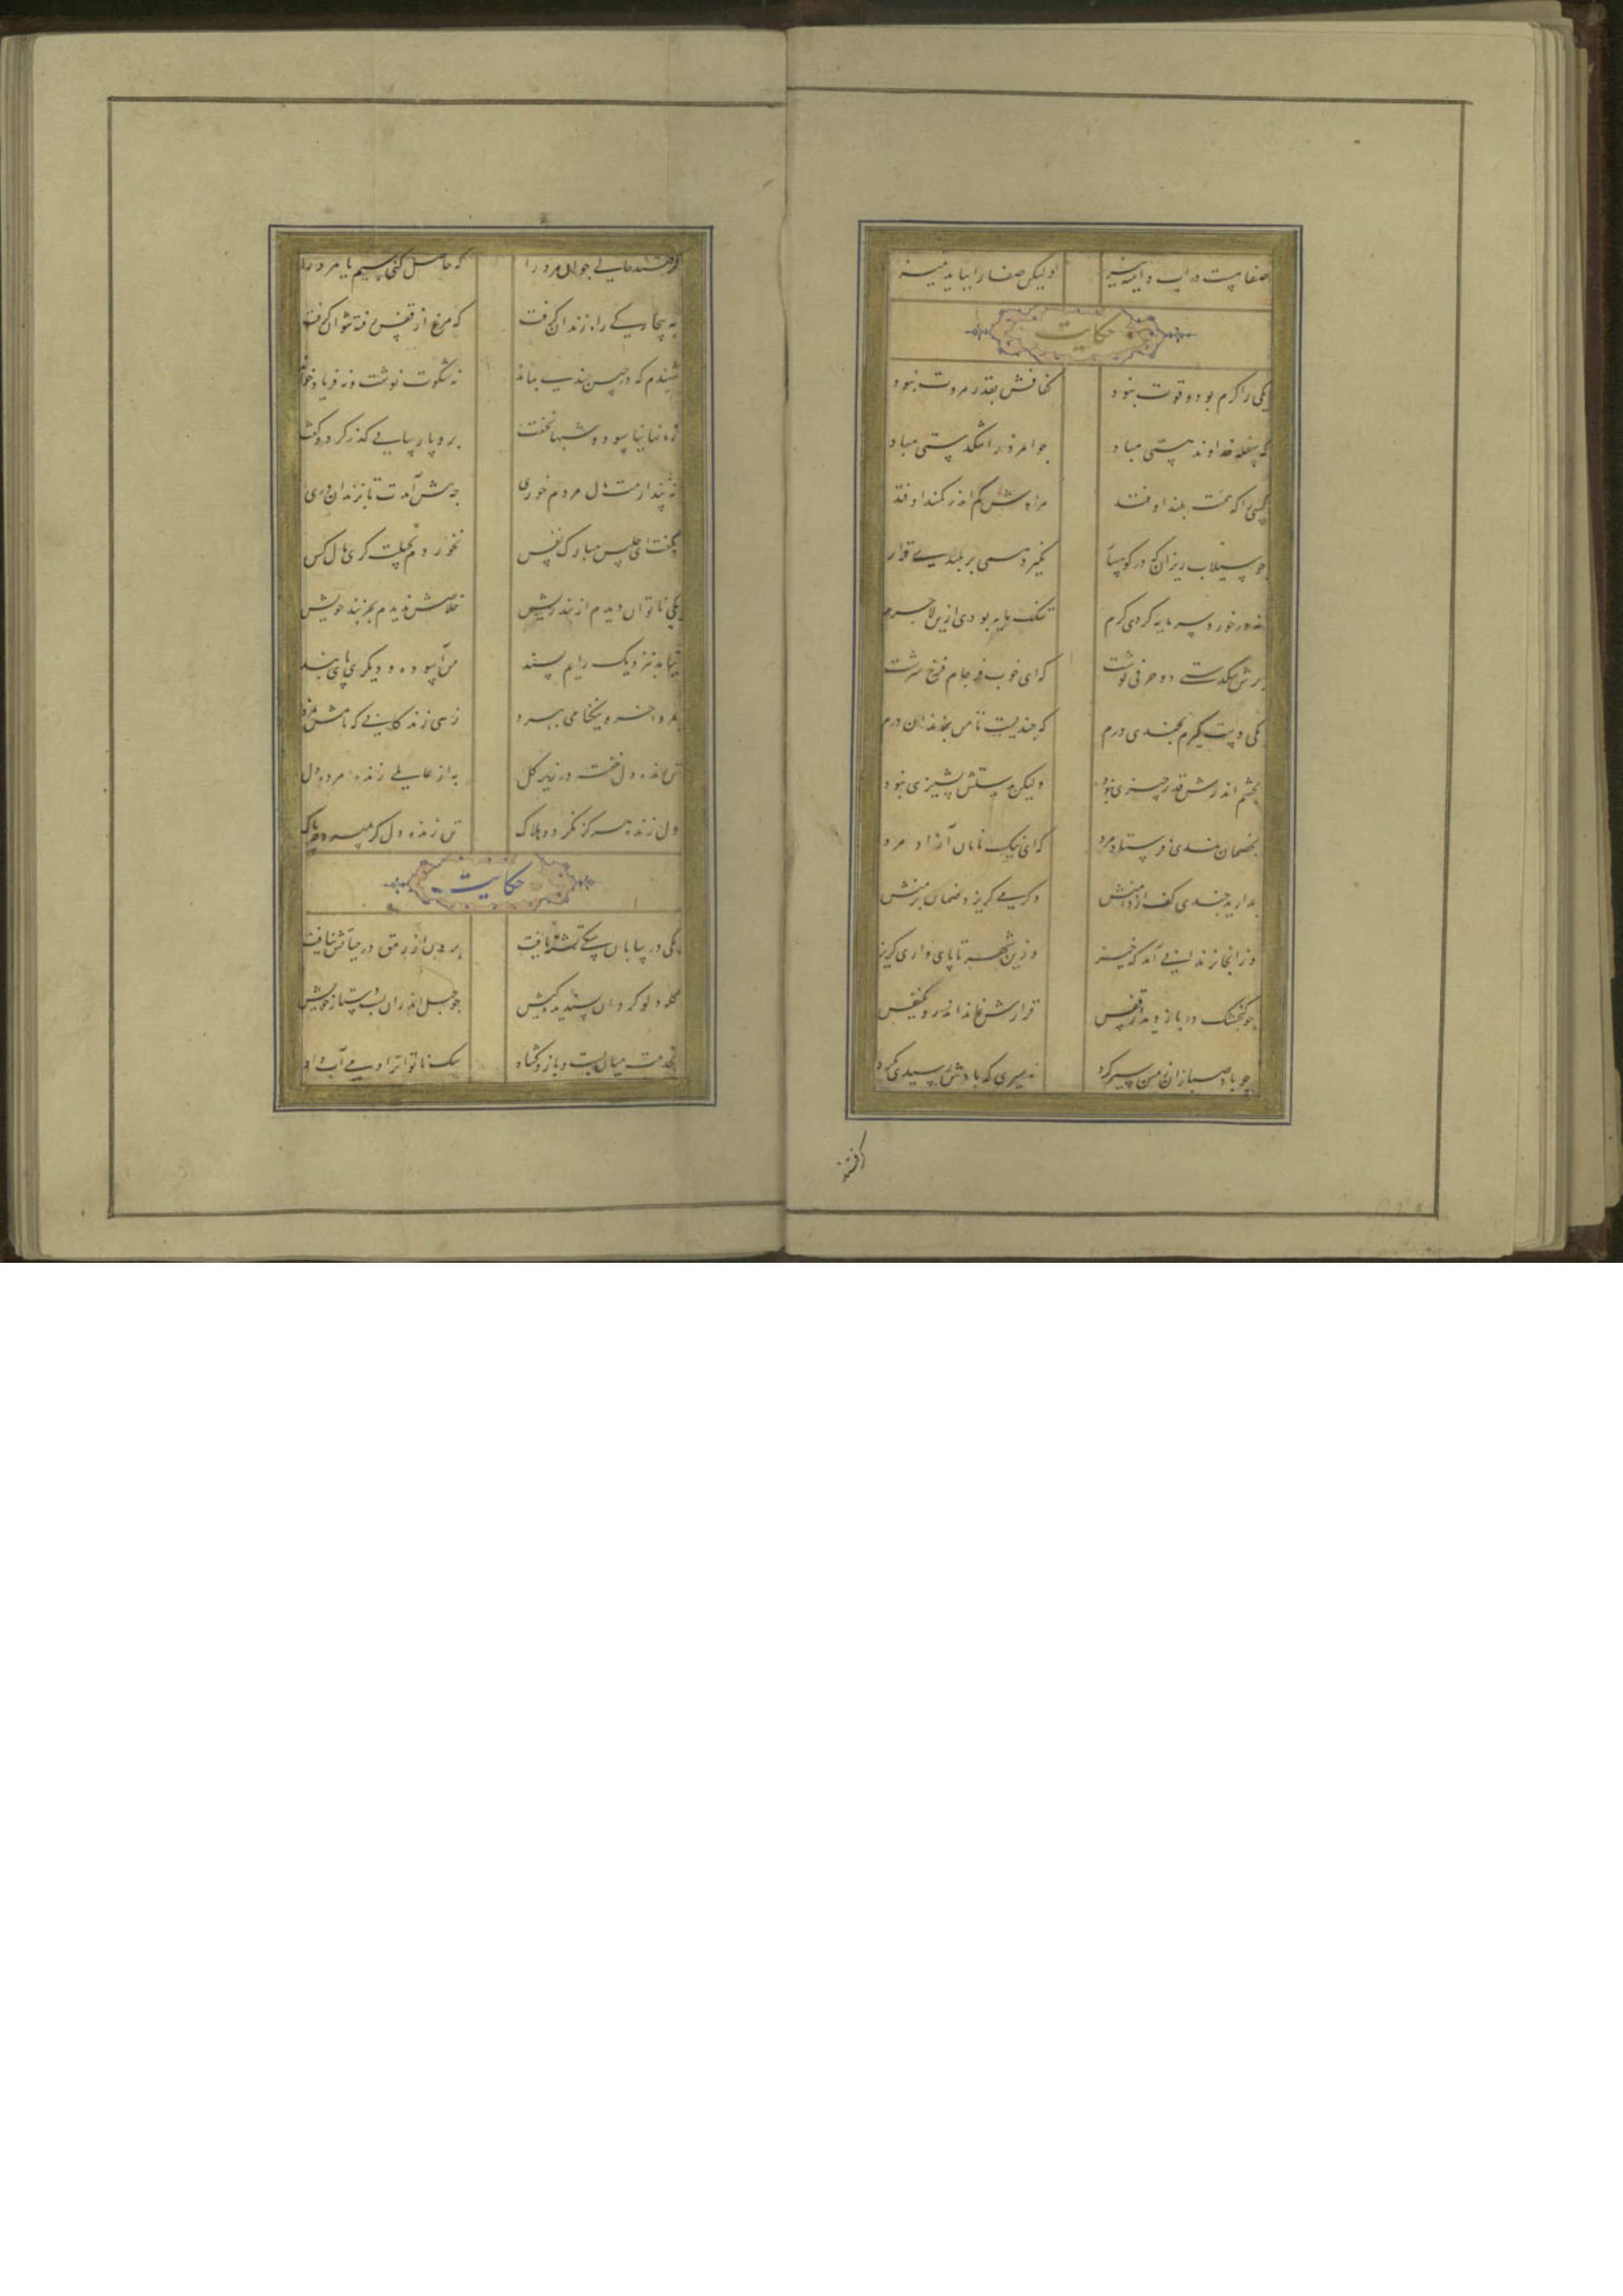 صفاییست در آب و آیینه نیز ولیکن صفا را بباید تمیز
حکایت
یکی را کرم بود و قوت نبود کفافش بقدر مروت نبود
که سفله خداوند هستی مباد جوانمرد را تنگدستی مباد
کسی را که همت بلند اوفتد مرادش کم اندر کمند اوفتد
چو سیلاب ریزان که در کوهسار نگیرد همی بر بلندی قرار
نه در خورد سرمایه کردی کرم تنک مایه بودی ازین لاجرم
برش تنگدستی دو حرفی نوشت که ای خوب فرجام فرخ سرشت
یکی دست گیرم بچندی درم که چندیست تا من بزندان درم
بچشم اندرش قدر چیزی نبود ولیکن بدستش پشیزی نبود
بخصمان بندی فرستاد مرد که ای نیک نامان آزاد مرد
بدارید چندی کف از دامنش وگر می گریزد ضمان بر منش
وز آنجا بزندانی آمد که خیز وزین شهر تا پای داری گریز
چو گنجشک در باز دید از قفس قرارش نماند اندرو یک نفس
چو باد صبا زان زمین سیر کرد نه سیری که بادش رسیدی بگرد
گرفتند
گرفتند حالی جوانمرد را که حاصل کن سیم یا مرد را
به بیچارگی راه زندان گرفت که مرغ از قفس رفته نتوان گرفت
شنیدم که در حبس چندی بماند نه شکوت نوشت و نه فریاد خواند
زمانها نیاسود و شبها نخفت برو پارسایی گذر کرد و گفت
نه پندارمت مال مردم خوری چه پیش آمدت تا بزندان دری
بگفت ای جلیس مبارک نفس نخوردم بحیلت گری مال کس
یکی ناتوان دیدم از بند ریش خلاصش ندیدم بجز بند خویش
نیامد بنزدیک رایم پسند من آسوده و دیگری پای بند
بمرد آخر و نیکنامی ببرد زهی زندگانی که نامش نمرد
تن زنده دل خفته در زیر گل به از عالمی زنده مرده دل
دل زنده هرگز نگردد هلاک تن زنده دل گر بمیرد چه باک
حکایت
یکی در بیابان سگی تشنه یافت برون از رمق در حیاتش نیافت
کله دلو کرد آن پسندیده کیش چو حبل اندر آن بست دستار خویش
بخدمت میان بست و بازو گشاد سگ ناتوانرا دمی آب داد